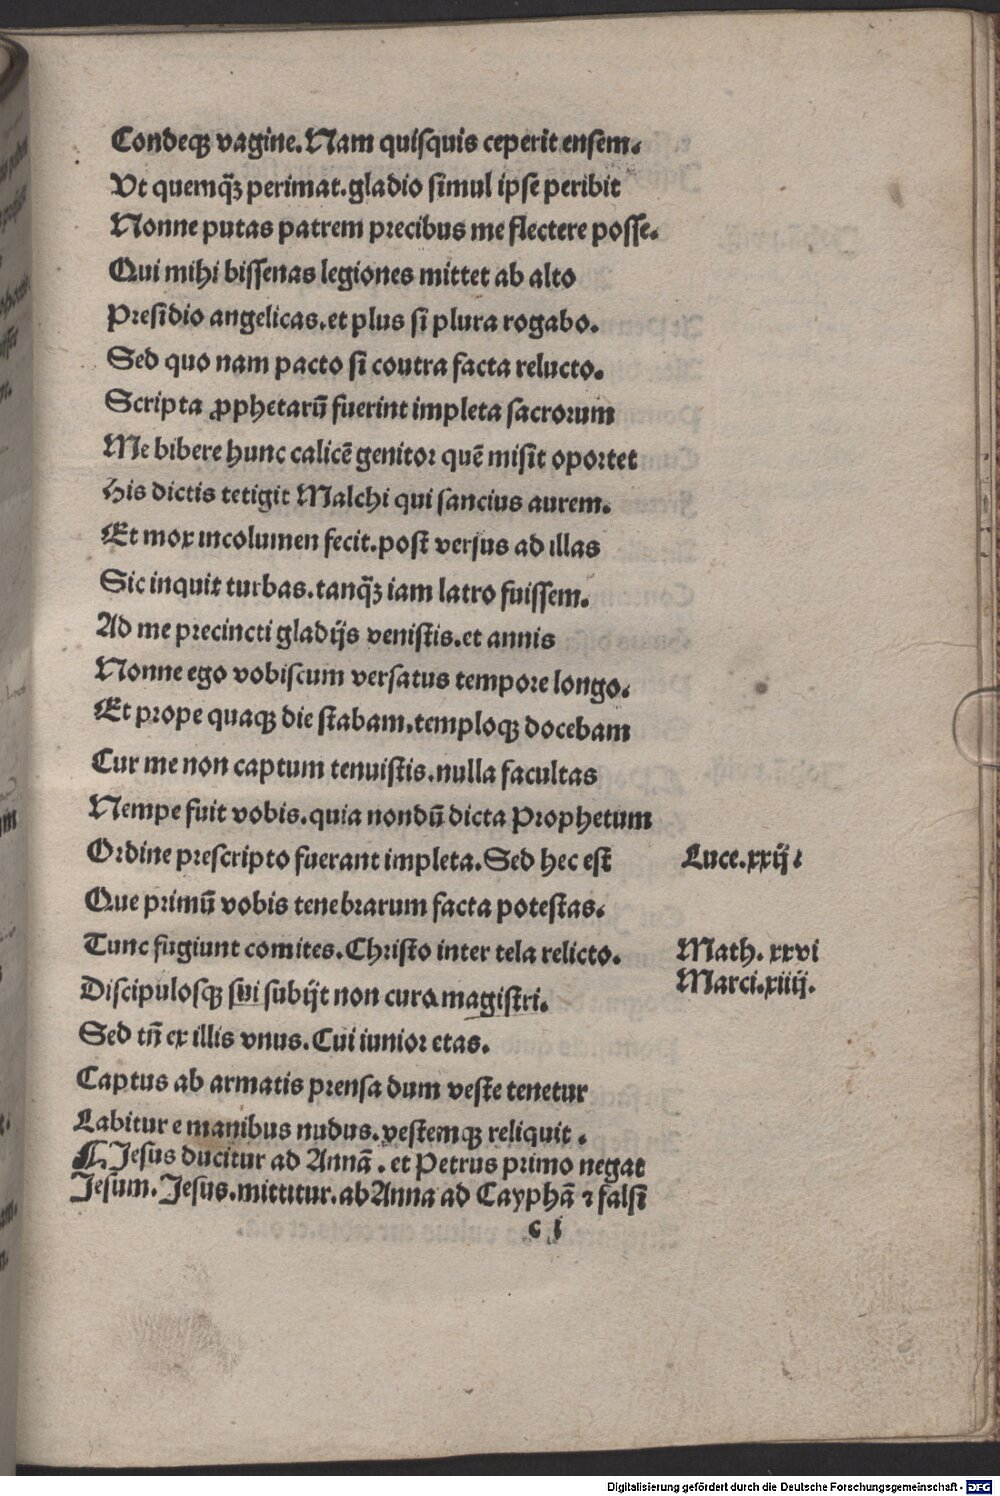 Condeqꝫ vagine. Nam quisquis ceperit ensem.
Vt quemq̃ꝫ perimat. gladio simul ipse peribit
Nonne putas patrem precibus me flectere posse.
Qui mihi bissenas legiones mittet ab alto
Presidio angelicas. et plus si plura rogabo.
Sed quo nam pacto si coutra facta relucto.
Scripta ꝓphetarū fuerint impleta sacrorum
Me bibere hunc calicē genitor quē misit oportet
His dictis tetigit Malchi qui sancius aurem.
Et mox incolumen fecit. post versus ad illas
Sic inquit turbas. tanq̃ꝫ iam latro fuissem.
Ad me precincti gladijs venistis. et annis
Nonne ego vobiscum versatus tempore longo.
Et prope quaqꝫ die stabam. temploqꝫ docebam
Cur me non captum tenuistis. nulla facultas
Nempe fuit vobis. quia nondū dicta Prophetum
Ordine prescripto fuerant impleta. Sed hec est
Luce. xxij:
Que primū vobis tenebrarum facta potestas.
Tunc fugiunt comites. Christo inter tela relicto.
Math. xxvi
Marci. xiiij.
Discipulosqꝫ sui subijt non cura magistri.
Sed tñ ex illis vnus. Cui iunior etas.
Captus ab armatis prensa dum veste tenetur
Labitur e manibus nudus. vestemqꝫ reliquit.
¶ Jesus ducitur ad Annā. et Petrus primo negat
Jesum. Jesus. mittitur. ab Anna ad Cayphā ⁊ falsi
c i
Digitalisierung gefördert durch die Deutsche Forschungsgemeinschaft - DFG